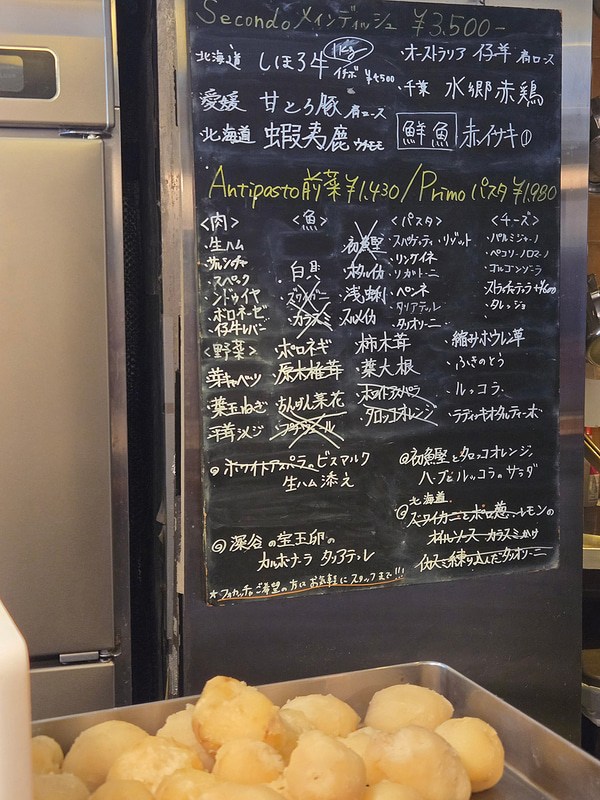 Secondo メインディッシュ ¥3,500-
北海道 しほろ牛 1kg イチボ ¥4,500
・オーストラリア 仔羊 肩ロース
愛媛 甘とろ豚 肩ロース
・千葉 水郷赤鶏
・北海道 蝦夷鹿 ウチモモ
鮮魚 赤イサキ①
Antipasto前菜¥1,430/Primo パスタ¥1,980
<肉>
・生ハム
・サルシッチャ
・スペック
・ンドゥイヤ
・ボロネーゼ
・仔牛レバー
<魚>
・白貝
・ズワイガニ
・カラスミ
初鰹
ホタルイカ
・浅蜊
スルメイカ
<パスタ>
・スパゲッティ・リゾット
・リングイネ
・リガトーニ
・ペンネ
・タリアテッレ
・タリオリーニ
<チーズ>
・パルミジャーノ
・ペコリーノロマーノ
・ゴルゴンゾーラ
・ストラッチャテッラ
・タレッジョ
<野菜>
・芽キャベツ
・葉玉ねぎ
・平茸シメジ
・ポロネギ
・原木椎茸
・ちんげん菜花
・柿木茸
・葉大根
・ホワイトアスパラ
・タロッコオレンジ
・縮みホウレン草
・ふきのとう
・ルッコラ
・ラディッキオタルティーボ
◎ホワイトアスパラのビスマルク
生ハム添え
◎初鰹とタロッコオレンジ、
ハーブとルッコラのサラダ
◎深谷の宝玉卵の
カルボナーラ タリアテッレ
北海道
◎ズワイガニとポロ葱、レモンの
オイルソース カラスミがけ
イカスミ練り込んだタリオリーニ
*フォカッチャご希望の方はお気軽にスタッフまで!!!